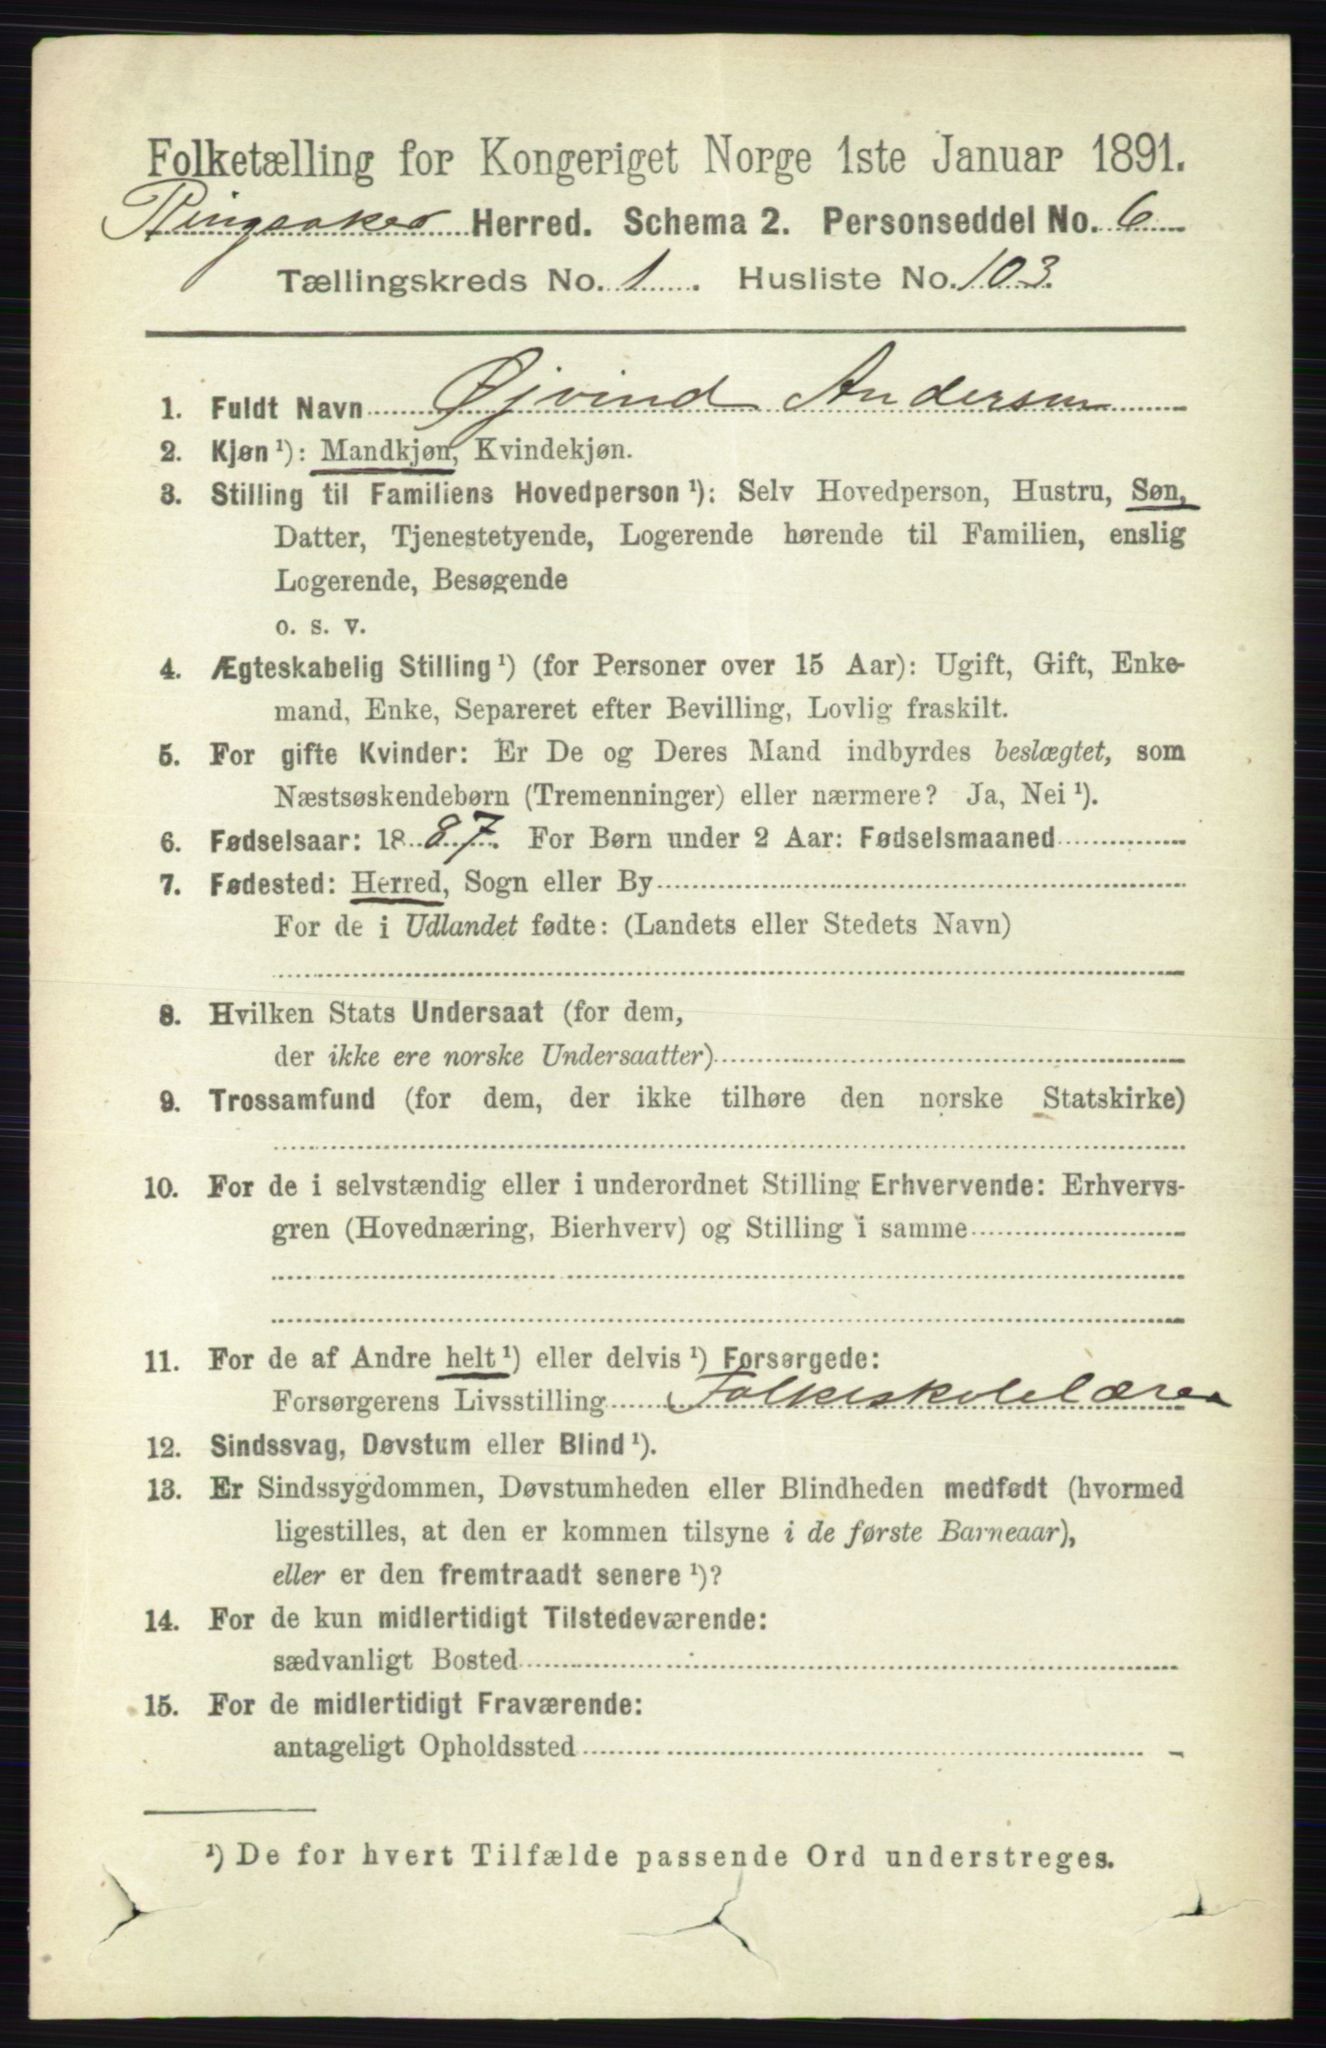 Folketælling for Kongeriget Norge 1ste Januar 1891.
Ringsaker Herred. Schema 2. Personseddel No. 6
Tællingskreds No. 1. Husliste No. 103.
1. Fuldt Navn Øjvind Andersen
2. Kjøn ¹): Mandkjøn, Kvindekjøn.
3. Stilling til Familiens Hovedperson ¹): Selv Hovedperson, Hustru, Søn,
Datter, Tjenestetyende, Logerende hørende til Familien, enslig
Logerende, Besøgende
o. s. v.
4. Ægteskabelig Stilling ¹) (for Personer over 15 Aar): Ugift, Gift, Enke-
mand, Enke, Separeret efter Bevilling, Lovlig fraskilt.
5. For gifte Kvinder: Er De og Deres Mand indbyrdes beslægtet, som
Næstsøskendebørn (Tremenninger) eller nærmere? Ja, Nei ¹).
6. Fødselsaar: 1887. For Børn under 2 Aar: Fødselsmaaned
7. Fødested: Herred, Sogn eller By
For de i Udlandet fødte: (Landets eller Stedets Navn)
8. Hvilken Stats Undersaat (for dem,
der ikke ere norske Undersaatter)
9. Trossamfund (for dem, der ikke tilhøre den norske Statskirke)
10. For de i selvstændig eller i underordnet Stilling Erhvervende: Erhvervs-
gren (Hovednæring, Bierhverv) og Stilling i samme
11. For de af Andre helt ¹) eller delvis ¹) Forsørgede:
Forsørgerens Livsstilling Folkeskolelærer
12. Sindssvag, Døvstum eller Blind ¹).
13. Er Sindssygdommen, Døvstumheden eller Blindheden medfødt (hvormed
ligestilles, at den er kommen tilsyne i de første Barneaar),
eller er den fremtraadt senere ¹)?
14. For de kun midlertidigt Tilstedeværende:
sædvanligt Bosted
15. For de midlertidigt Fraværende:
antageligt Opholdssted
¹) De for hvert Tilfælde passende Ord understreges.